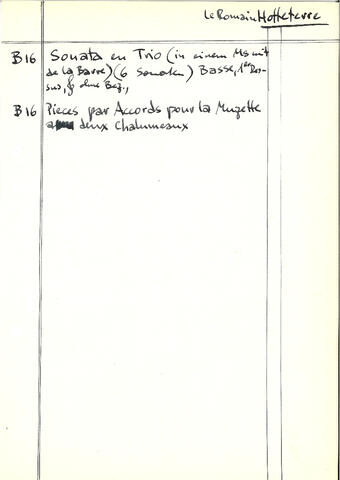 Le Romain Hotteterre
B 16 Sonata en Trio (in einem Ms mit
de la Barre) (6 Sonaten) Basse, 1er Des-
sus, ohne Bez.,
B 16 Pieces par Accords pour la Muzette
a deux Chalumeaux